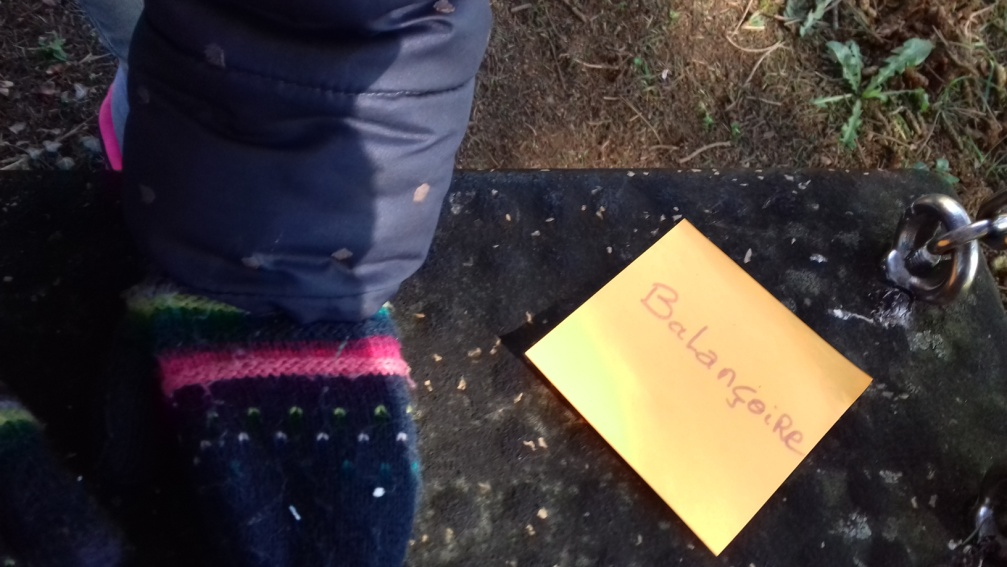 Balançoire